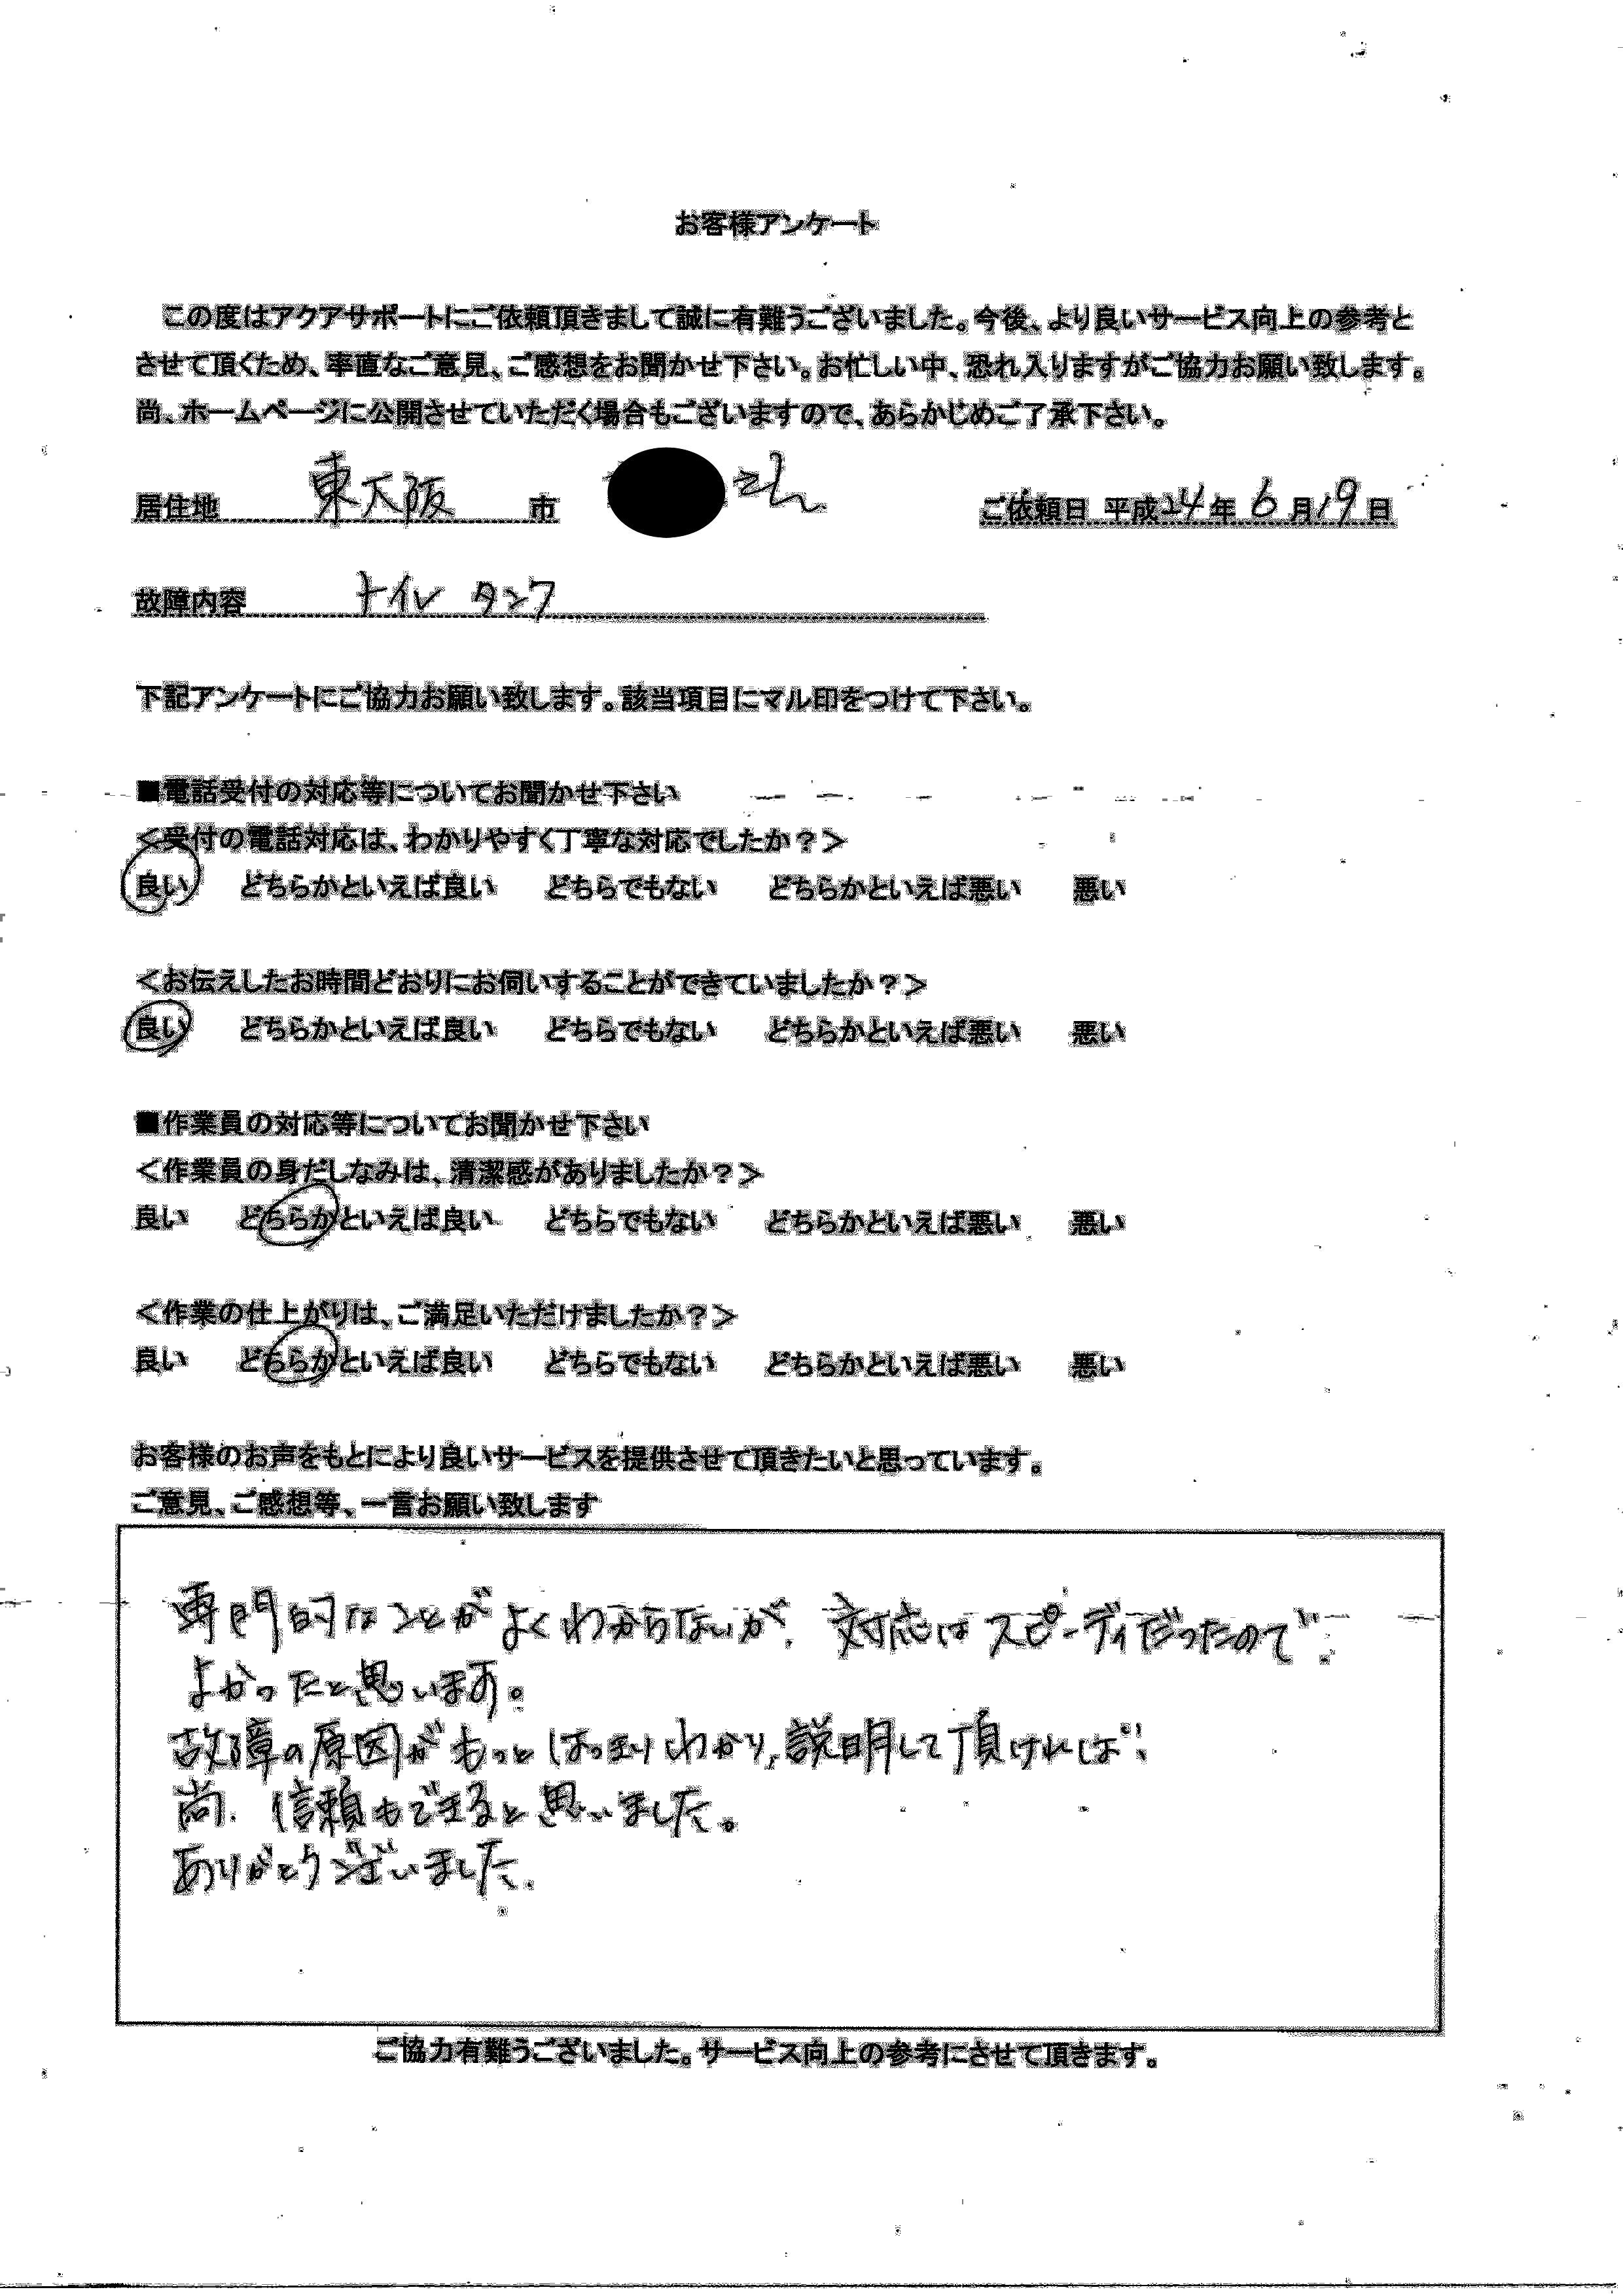 お客様アンケート
この度はアクアサポートにご依頼頂きまして誠に有難うございました。今後、より良いサービス向上の参考と
させて頂くため、率直なご意見、ご感想をお聞かせ下さい。お忙しい中、恐れ入りますがご協力お願い致します。
尚、ホームページに公開させていただく場合もございますので、あらかじめご了承下さい。
居住地 東大阪 市 さん ご依頼日 平成24年6月19日
故障内容 トイレ タンク
下記アンケートにご協力お願い致します。該当項目にマル印をつけて下さい。
■電話受付の対応等についてお聞かせ下さい
＜受付の電話対応は、わかりやすく丁寧な対応でしたか？＞
良い どちらかといえば良い どちらでもない どちらかといえば悪い 悪い
＜お伝えしたお時間どおりにお伺いすることができていましたか？＞
良い どちらかといえば良い どちらでもない どちらかといえば悪い 悪い
■作業員の対応等についてお聞かせ下さい
＜作業員の身だしなみは、清潔感がありましたか？＞
良い どちらかといえば良い どちらでもない どちらかといえば悪い 悪い
＜作業の仕上がりは、ご満足いただけましたか？＞
良い どちらかといえば良い どちらでもない どちらかといえば悪い 悪い
お客様のお声をもとにより良いサービスを提供させて頂きたいと思っています。
ご意見、ご感想等、一言お願い致します
専門的なことがよくわからないが、対応はスピーディだったので
よかったと思います。
故障の原因がもっとはっきりわかり、説明して頂ければ
尚、信頼もできると思いました。
ありがとうございました。
ご協力有難うございました。サービス向上の参考にさせて頂きます。